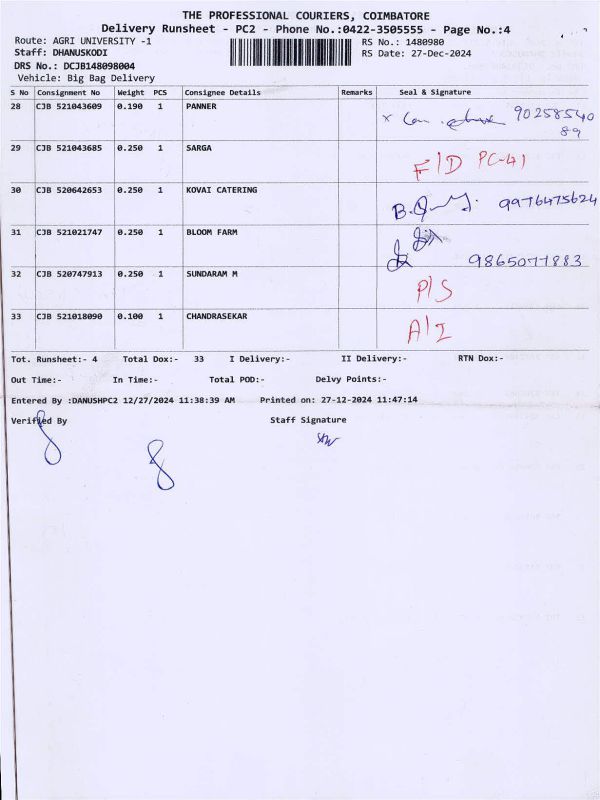 THE PROFESSIONAL COURIERS, COIMBATORE
Delivery Runsheet - PC2 - Phone No.:0422-3505555 - Page No.:4
Route: AGRI UNIVERSITY -1 RS No.: 1480980
Staff: DHANUSKODI RS Date: 27-Dec-2024
DRS No.: DCJB148098004
Vehicle: Big Bag Delivery
S No Consignment No Weight PCS Consignee Details Remarks Seal & Signature
28 CJB 521043609 0.190 1 PANNER 90258540
89
29 CJB 521043685 0.250 1 SARGA F/D PC-41
30 CJB 520642653 0.250 1 KOVAI CATERING 9976475624
31 CJB 521021747 0.250 1 BLOOM FARM 9865077883
32 CJB 520747913 0.250 1 SUNDARAM M P/S
33 CJB 521018090 0.100 1 CHANDRASEKAR A/I
Tot. Runsheet:- 4 Total Dox:- 33 I Delivery:- II Delivery:- RTN Dox:-
Out Time:- In Time:- Total POD:- Delvy Points:-
Entered By :DANUSHPC2 12/27/2024 11:38:39 AM Printed on: 27-12-2024 11:47:14
Verified By Staff Signature